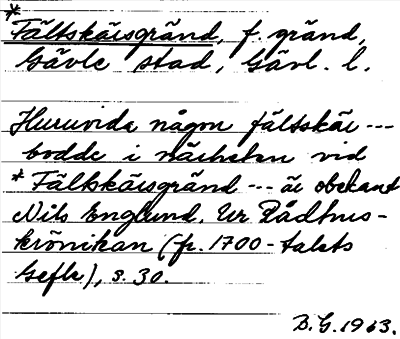 *
Fältskärsgränd, f. gränd,
Gävle stad, Gävl. l.
Huruvida någon fältskär ---
bodde i närheten vid
* Fältskärsgränd --- är obekant
Nils Englund. Ur Rådhus-
krönikan (fr. 1700-talets
Gefle), s. 30.
B. G. 1963.